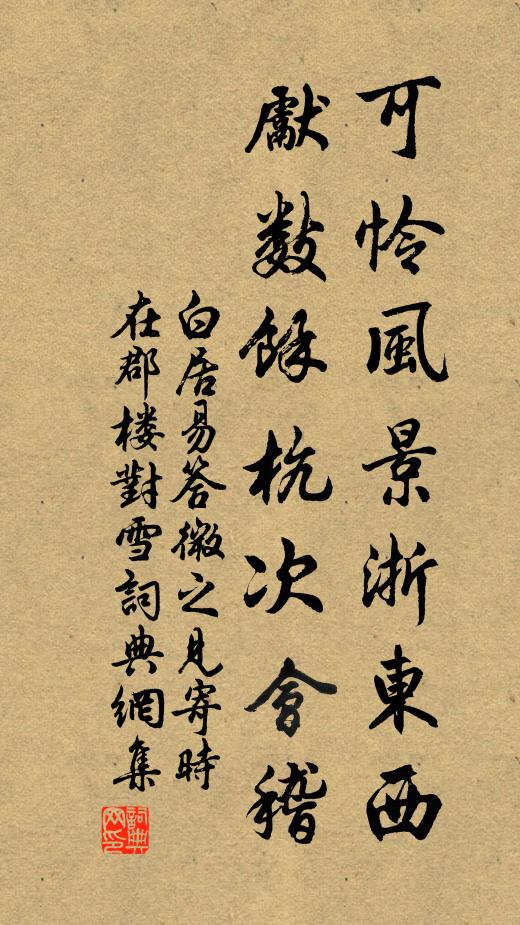 可怜風景浙東西
獻数餘杭次會稽
白居易答微之見寄時
在郡楼對雪詞典網集
詞典
网印